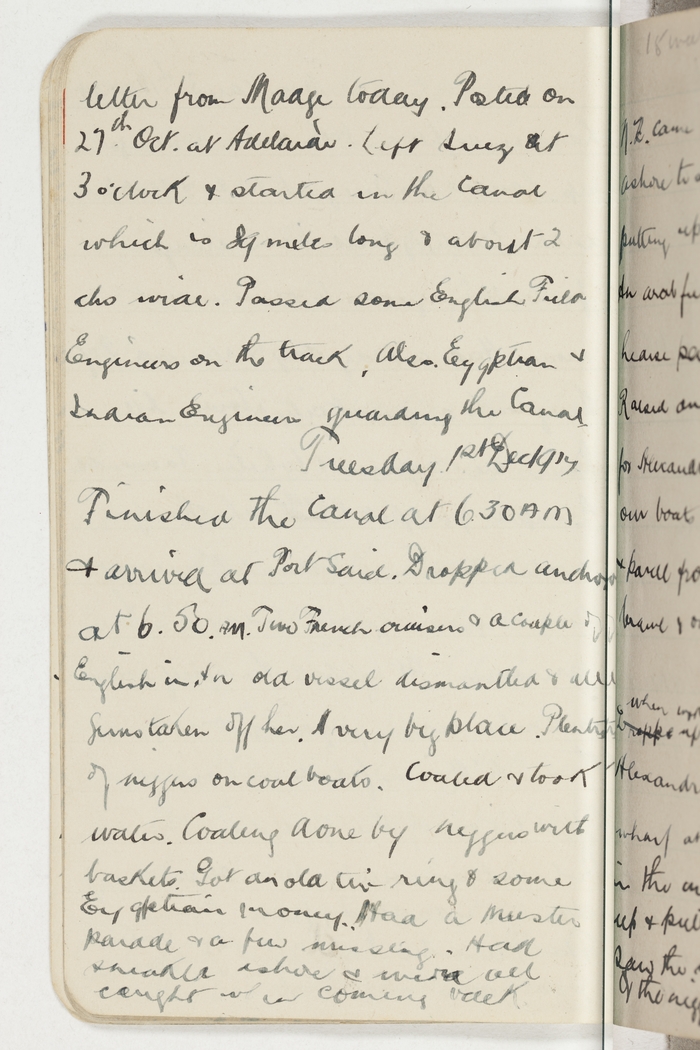 letter from Madge today. Posted on
27th Oct. at Adelaide. Left Suez at
3 o'clock & started in the Canal
which is 89 miles long & about 2
chs wide. Passed some English Field
Engineers on the track, Also. Eygptian &
Indian Engineers guarding the Canal
Tuesday 1st Dec 1914
Finished the Canal at 6.30 AM
& arrived at Port Said. Dropped anchor
at 6.50. AM. Two French cruisers & a couple of
English in, An old vessel dismantled & all
Guns taken off her. A very big place. Plenty
of niggers on coal boats. Coaled & took
water. Coaling done by niggers with
baskets. Got an old tin ring & some
Eygptian money. Had a Muster
Parade & a few missing. Had
sneaked ashore & were all
caught when coming back
18
N.Z. came
ashore to
putting up
hearse
Raised
for
our boats
&
when
Dropped
Alexandr
wharf at
in the
up &
Saw the
& the